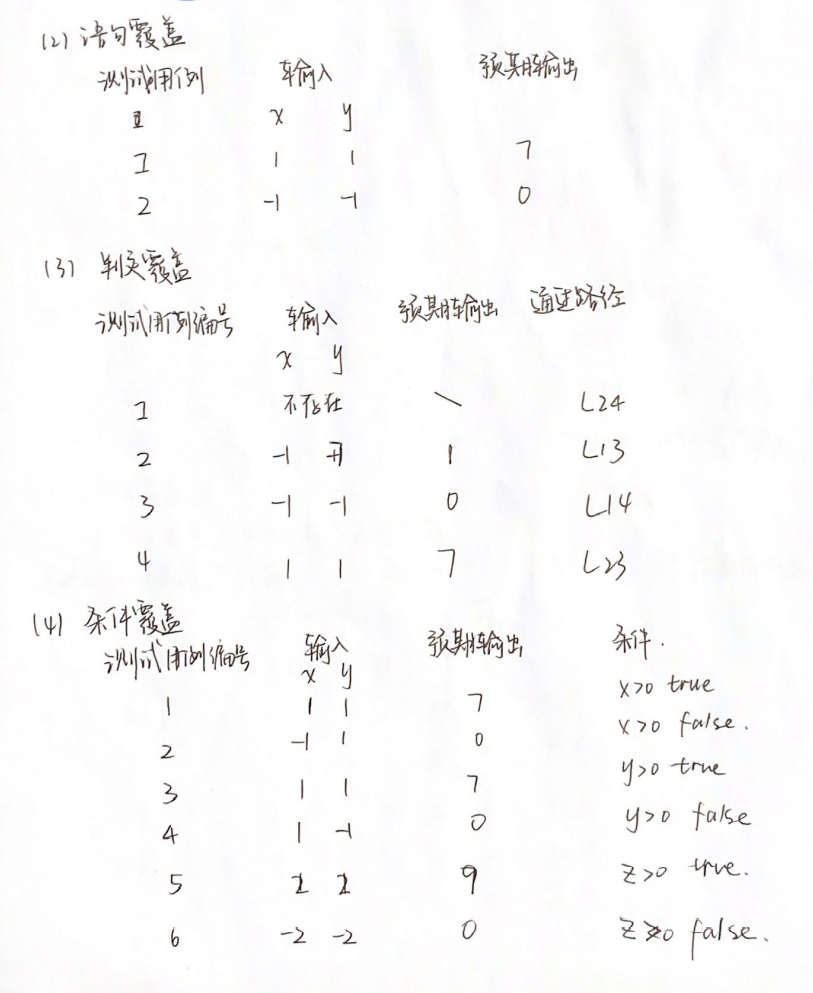 (2) 语句覆盖
测试用例 输入 预期输出
x y
1 1 1 7
2 -1 -1 0
(3) 判定覆盖
测试用例编号 输入 预期输出 通过路径
x y
1 不存在 \ L24
2 -1 1 L13
3 -1 -1 0 L14
4 1 1 7 L23
(4) 条件覆盖
测试用例编号 输入 预期输出 条件.
x y
1 1 1 7 x>0 true
2 -1 1 0 x>0 false.
3 1 1 7 y>0 true
4 1 -1 0 y>0 false
5 2 2 9 z>0 true.
6 -2 -2 0 z>0 false.